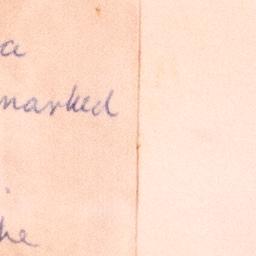 a
marked
he